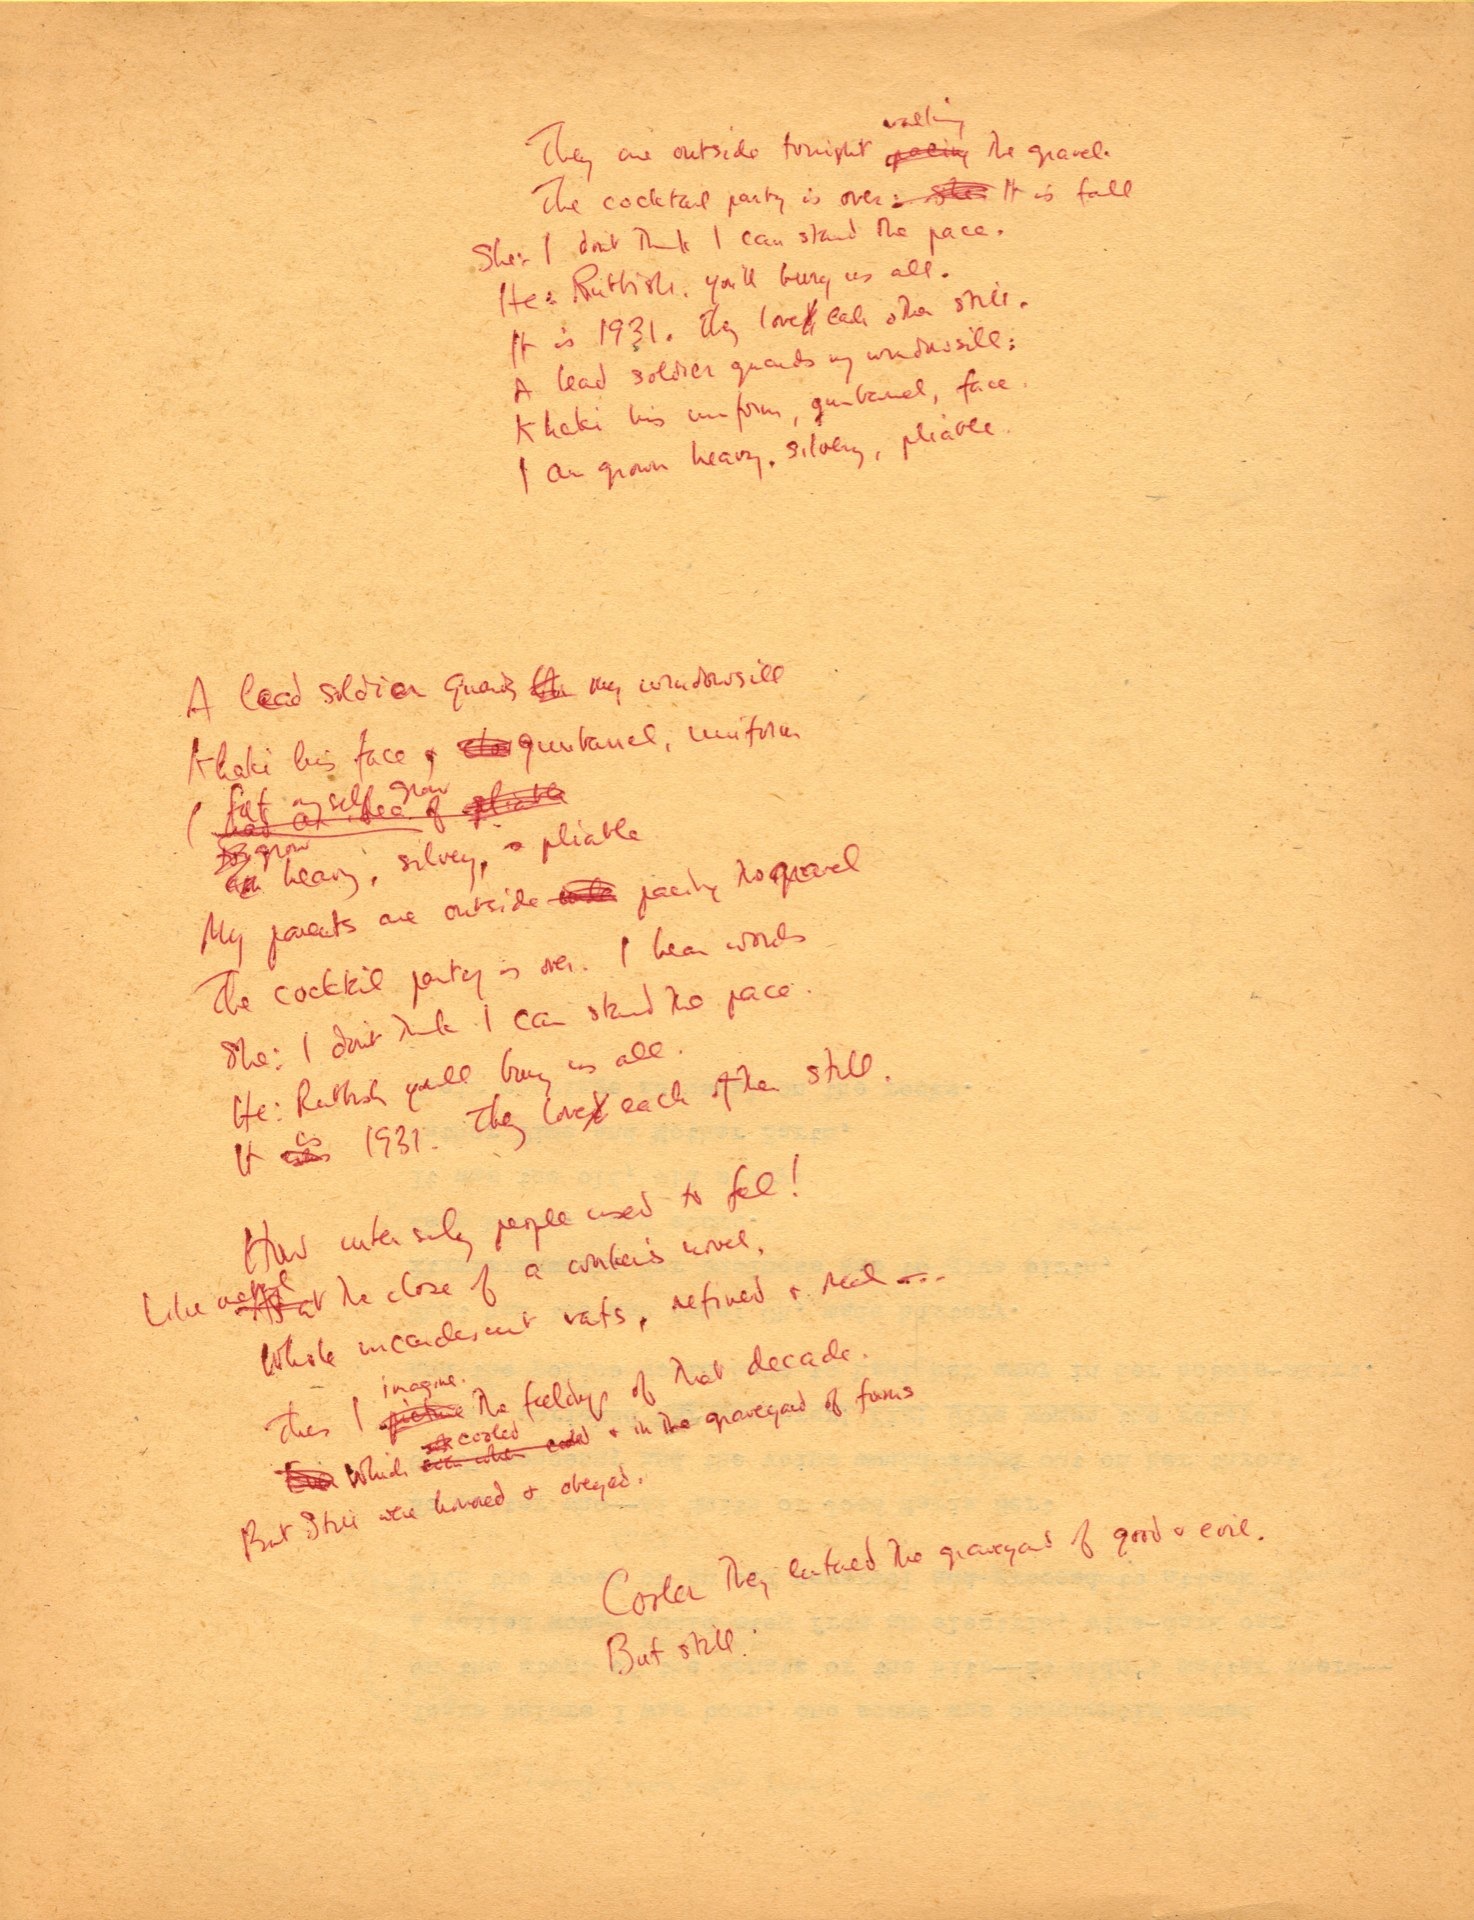 walking
They are outside tonight pacing the gravel.
The cocktail party is over: She It is fall
She: I dont think I can stand the pace.
He: Rubbish. you'll bury us all.
It is 1931. They loved each other still.
A lead soldier guards my windowsill:
Khaki his uniform, gunbarrel, face.
I am grown heavy, silvery, pliable.
A lead soldier guards the my windowsill
Khaki his face, gunbarrel, uniform
felt myself grow
I had an idea of pliable
grow
am heavy, silvery, + pliable
My parents are outside pacing the gravel
The cocktail party is over. I hear words
She: I don't think I can stand the pace.
He: Rubbish you'll bury us all.
is
It was 1931. They loved each other still.
How intensely people used to feel!
Like metal at the close of a smelter's novel,
Whole incandescent vats, refined + real ---
imagine.
Thus I picture the feelings of that decade.
cooled
Which even when cooled + in the graveyard of forms
But still were honored + obeyed.
Cooler they entered the graveyard of good + evil.
But still: